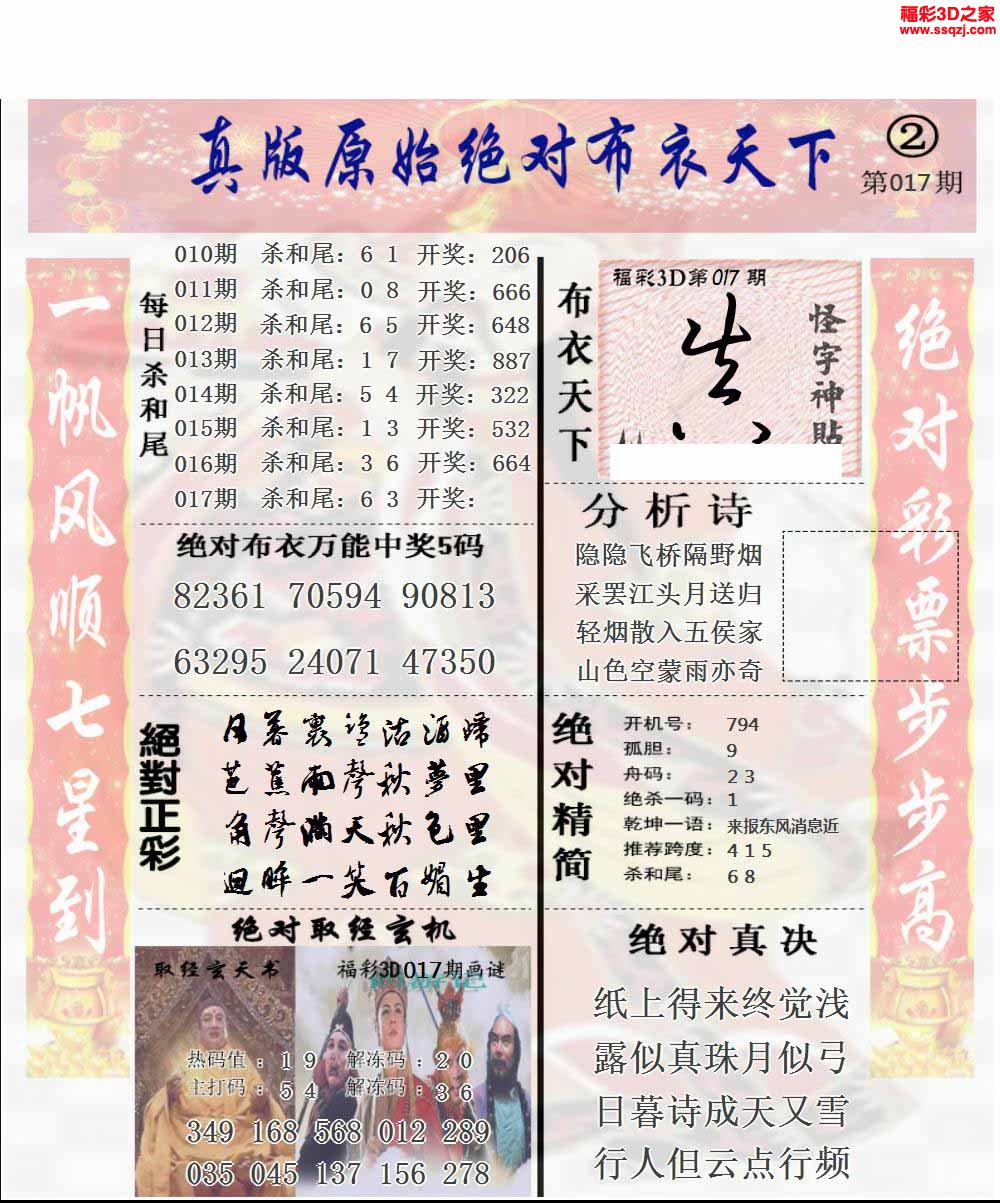 福彩3D之家
www.ssqzj.com
真版原始绝对布衣天下
②
第017期
一帆风顺七星到
绝对彩票步步高
每日杀和尾
010期 杀和尾：6 1 开奖：206
011期 杀和尾：0 8 开奖：666
012期 杀和尾：6 5 开奖：648
013期 杀和尾：1 7 开奖：887
014期 杀和尾：5 4 开奖：322
015期 杀和尾：1 3 开奖：532
016期 杀和尾：3 6 开奖：664
017期 杀和尾：6 3 开奖：
绝对布衣万能中奖5码
82361 70594 90813
63295 24071 47350
絕對正彩
日暮裏鐙沽酒歸
芭蕉雨聲秋夢里
角聲滿天秋色里
迴眸一笑百媚生
绝对取经玄机
取经玄天书
福彩3D017期画谜
热码值：1 9 解冻码：2 0
主打码：5 4 解冻码：3 6
349 168 568 012 289
035 045 137 156 278
布衣天下
福彩3D第017期
怪字神貼
分析诗
隐隐飞桥隔野烟
采罢江头月送归
轻烟散入五侯家
山色空蒙雨亦奇
绝对精简
开机号：794
孤胆：9
舟码：2 3
绝杀一码：1
乾坤一语：来报东风消息近
推荐跨度：4 1 5
杀和尾：6 8
绝对真决
纸上得来终觉浅
露似真珠月似弓
日暮诗成天又雪
行人但云点行频